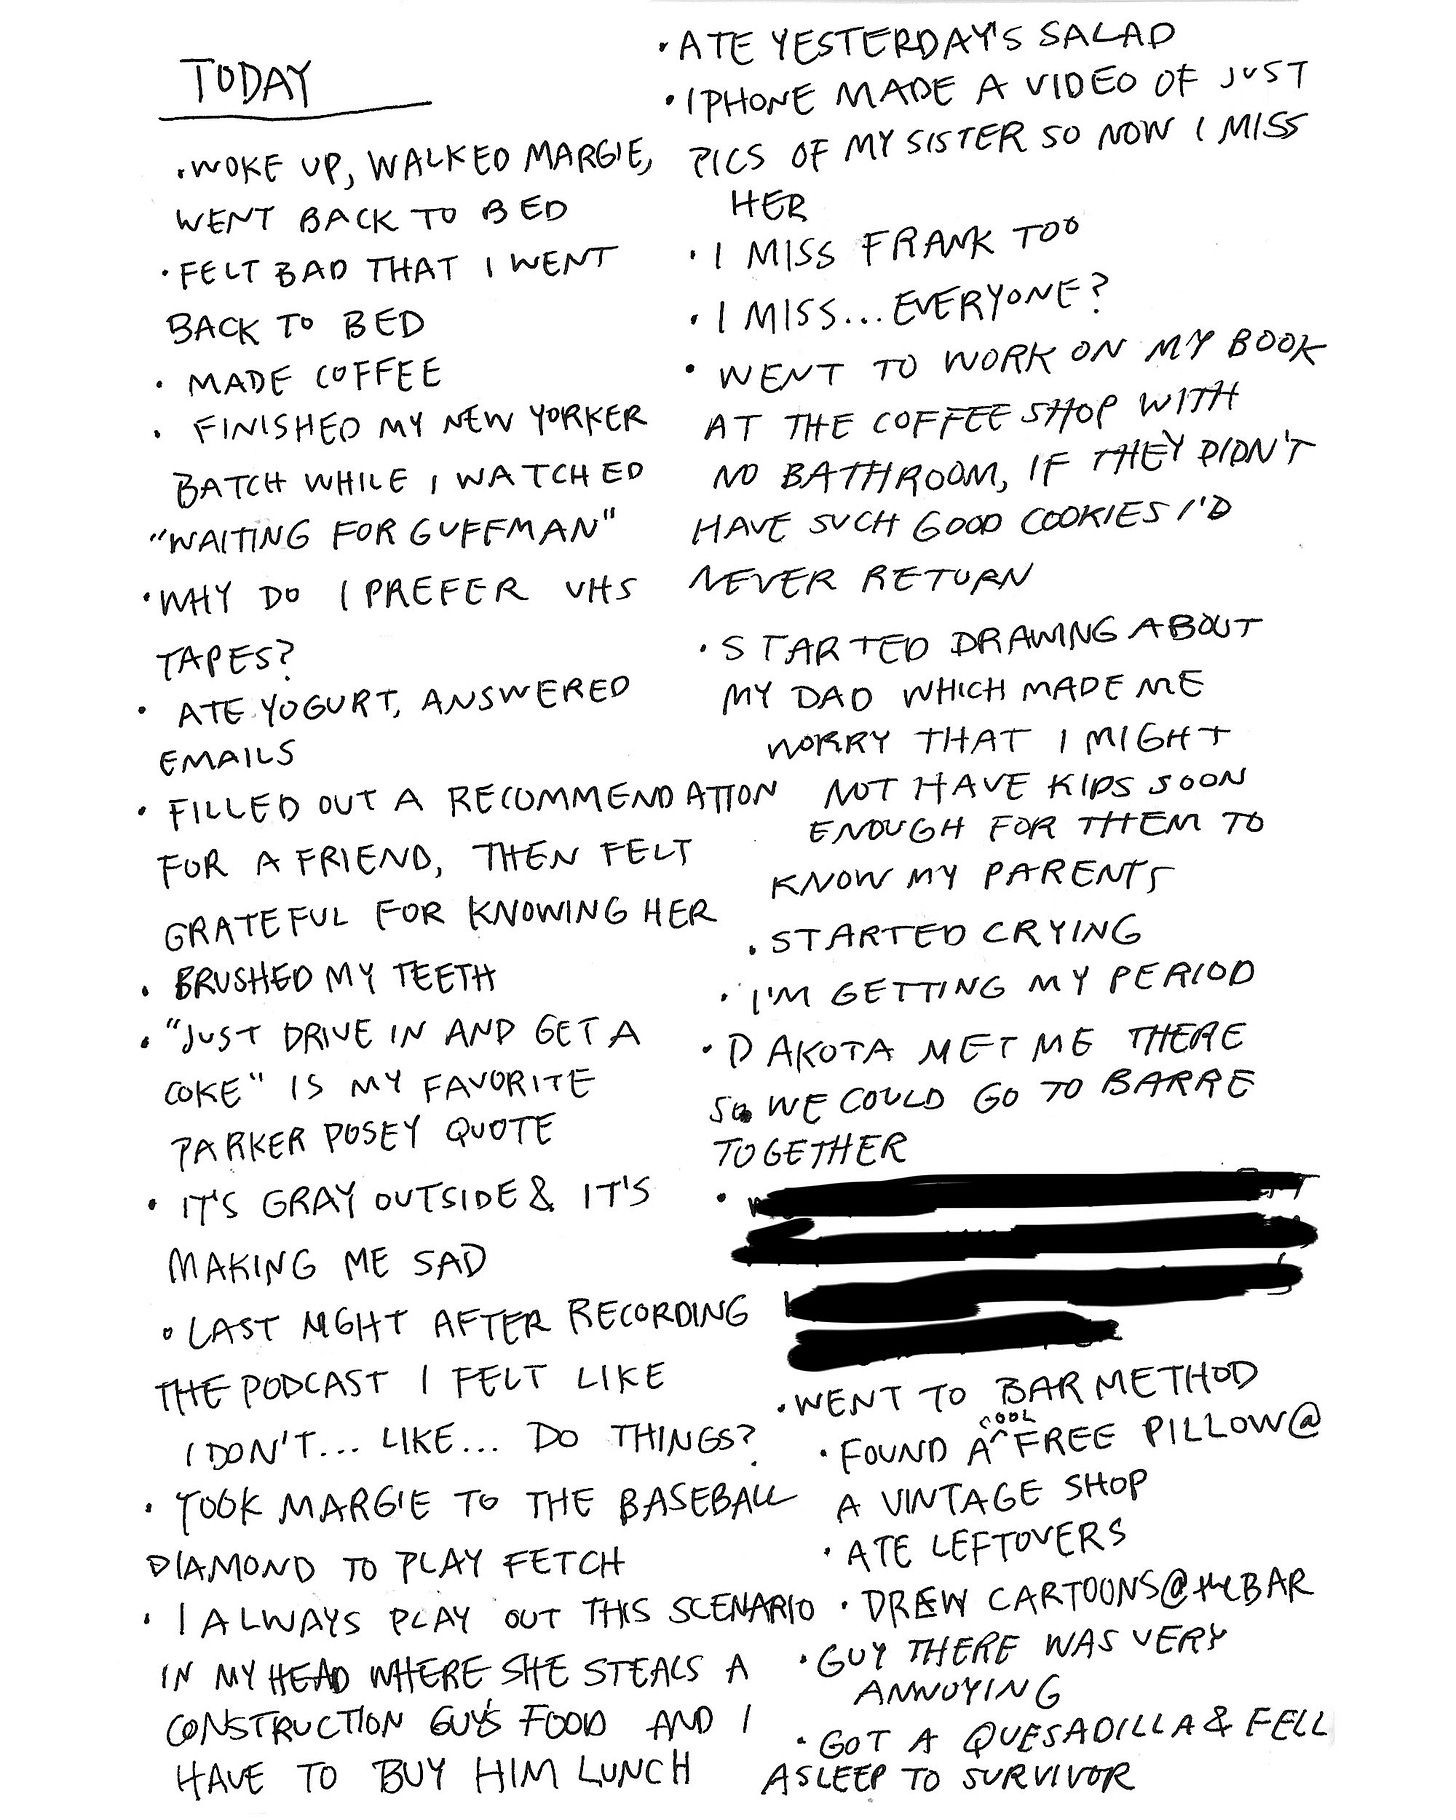 TODAY
• WOKE UP, WALKED MARGIE,
WENT BACK TO BED
• FELT BAD THAT I WENT
BACK TO BED
• MADE COFFEE
• FINISHED MY NEW YORKER
BATCH WHILE I WATCHED
"WAITING FOR GUFFMAN"
• WHY DO I PREFER VHS
TAPES?
• ATE YOGURT, ANSWERED
EMAILS
• FILLED OUT A RECOMMENDATION
FOR A FRIEND, THEN FELT
GRATEFUL FOR KNOWING HER
• BRUSHED MY TEETH
• "JUST DRIVE IN AND GET A
COKE" IS MY FAVORITE
PARKER POSEY QUOTE
• IT'S GRAY OUTSIDE & IT'S
MAKING ME SAD
• LAST NIGHT AFTER RECORDING
THE PODCAST I FELT LIKE
I DON'T... LIKE... DO THINGS?
• TOOK MARGIE TO THE BASEBALL
DIAMOND TO PLAY FETCH
• I ALWAYS PLAY OUT THIS SCENARIO
IN MY HEAD WHERE SHE STEALS A
CONSTRUCTION GUY'S FOOD AND I
HAVE TO BUY HIM LUNCH
• ATE YESTERDAY'S SALAD
• IPHONE MADE A VIDEO OF JUST
PICS OF MY SISTER SO NOW I MISS
HER
• I MISS FRANK TOO
• I MISS... EVERYONE?
• WENT TO WORK ON MY BOOK
AT THE COFFEE SHOP WITH
NO BATHROOM, IF THEY DIDN'T
HAVE SUCH GOOD COOKIES I'D
NEVER RETURN
• STARTED DRAWING ABOUT
MY DAD WHICH MADE ME
WORRY THAT I MIGHT
NOT HAVE KIDS SOON
ENOUGH FOR THEM TO
KNOW MY PARENTS
• STARTED CRYING
• I'M GETTING MY PERIOD
• DAKOTA MET ME THERE
SO WE COULD GO TO BARRE
TOGETHER
•
• WENT TO BAR METHOD
• FOUND A ^COOL FREE PILLOW @
A VINTAGE SHOP
• ATE LEFTOVERS
• DREW CARTOONS @ the BAR
• GUY THERE WAS VERY
ANNOYING
• GOT A QUESADILLA & FELL
ASLEEP TO SURVIVOR